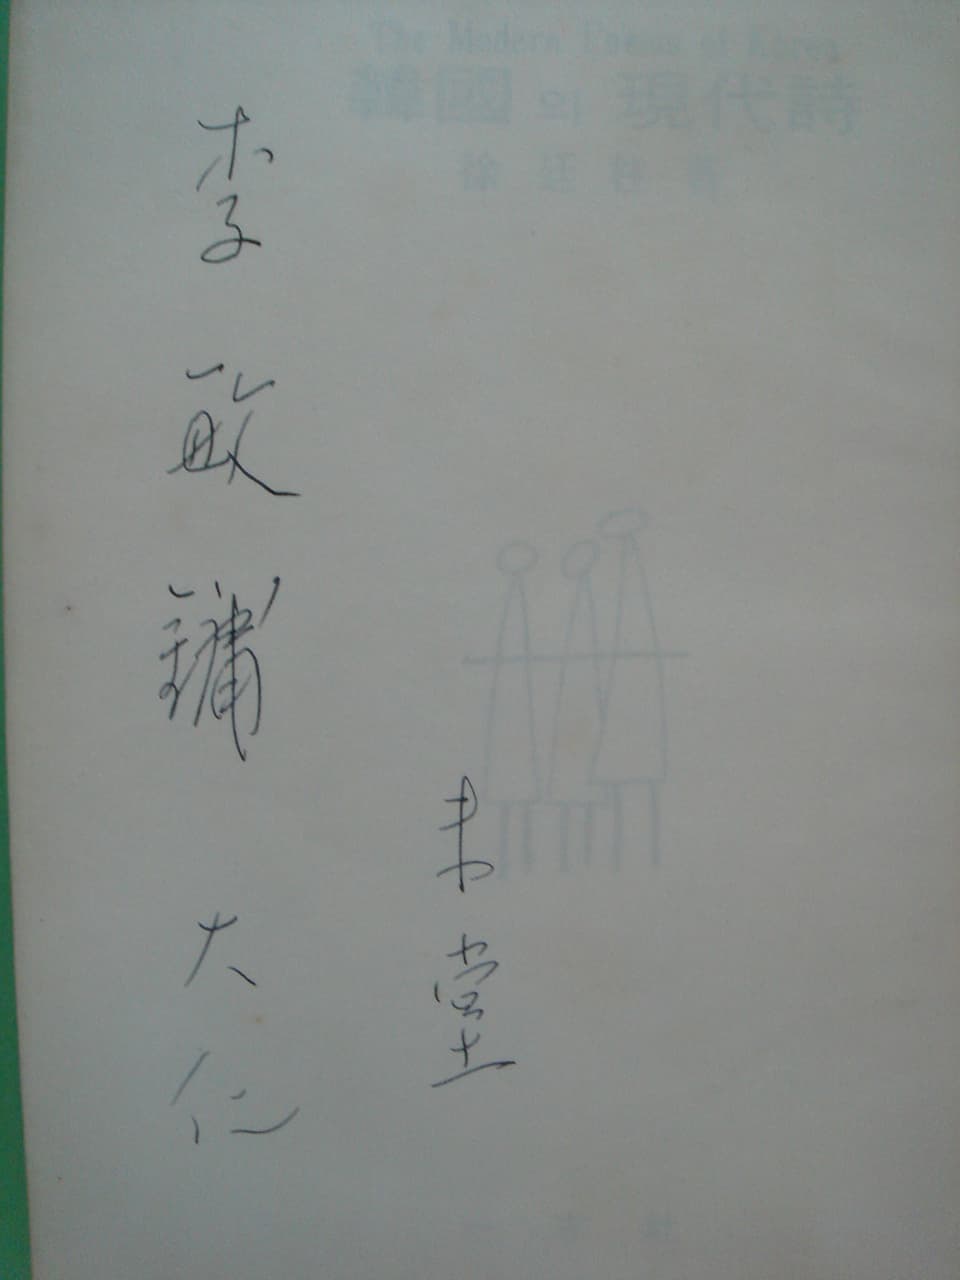 The Modern Poems of Korea
韓國의 現代詩
徐廷柱 著
李敏鏞 大仁
未堂
一志社